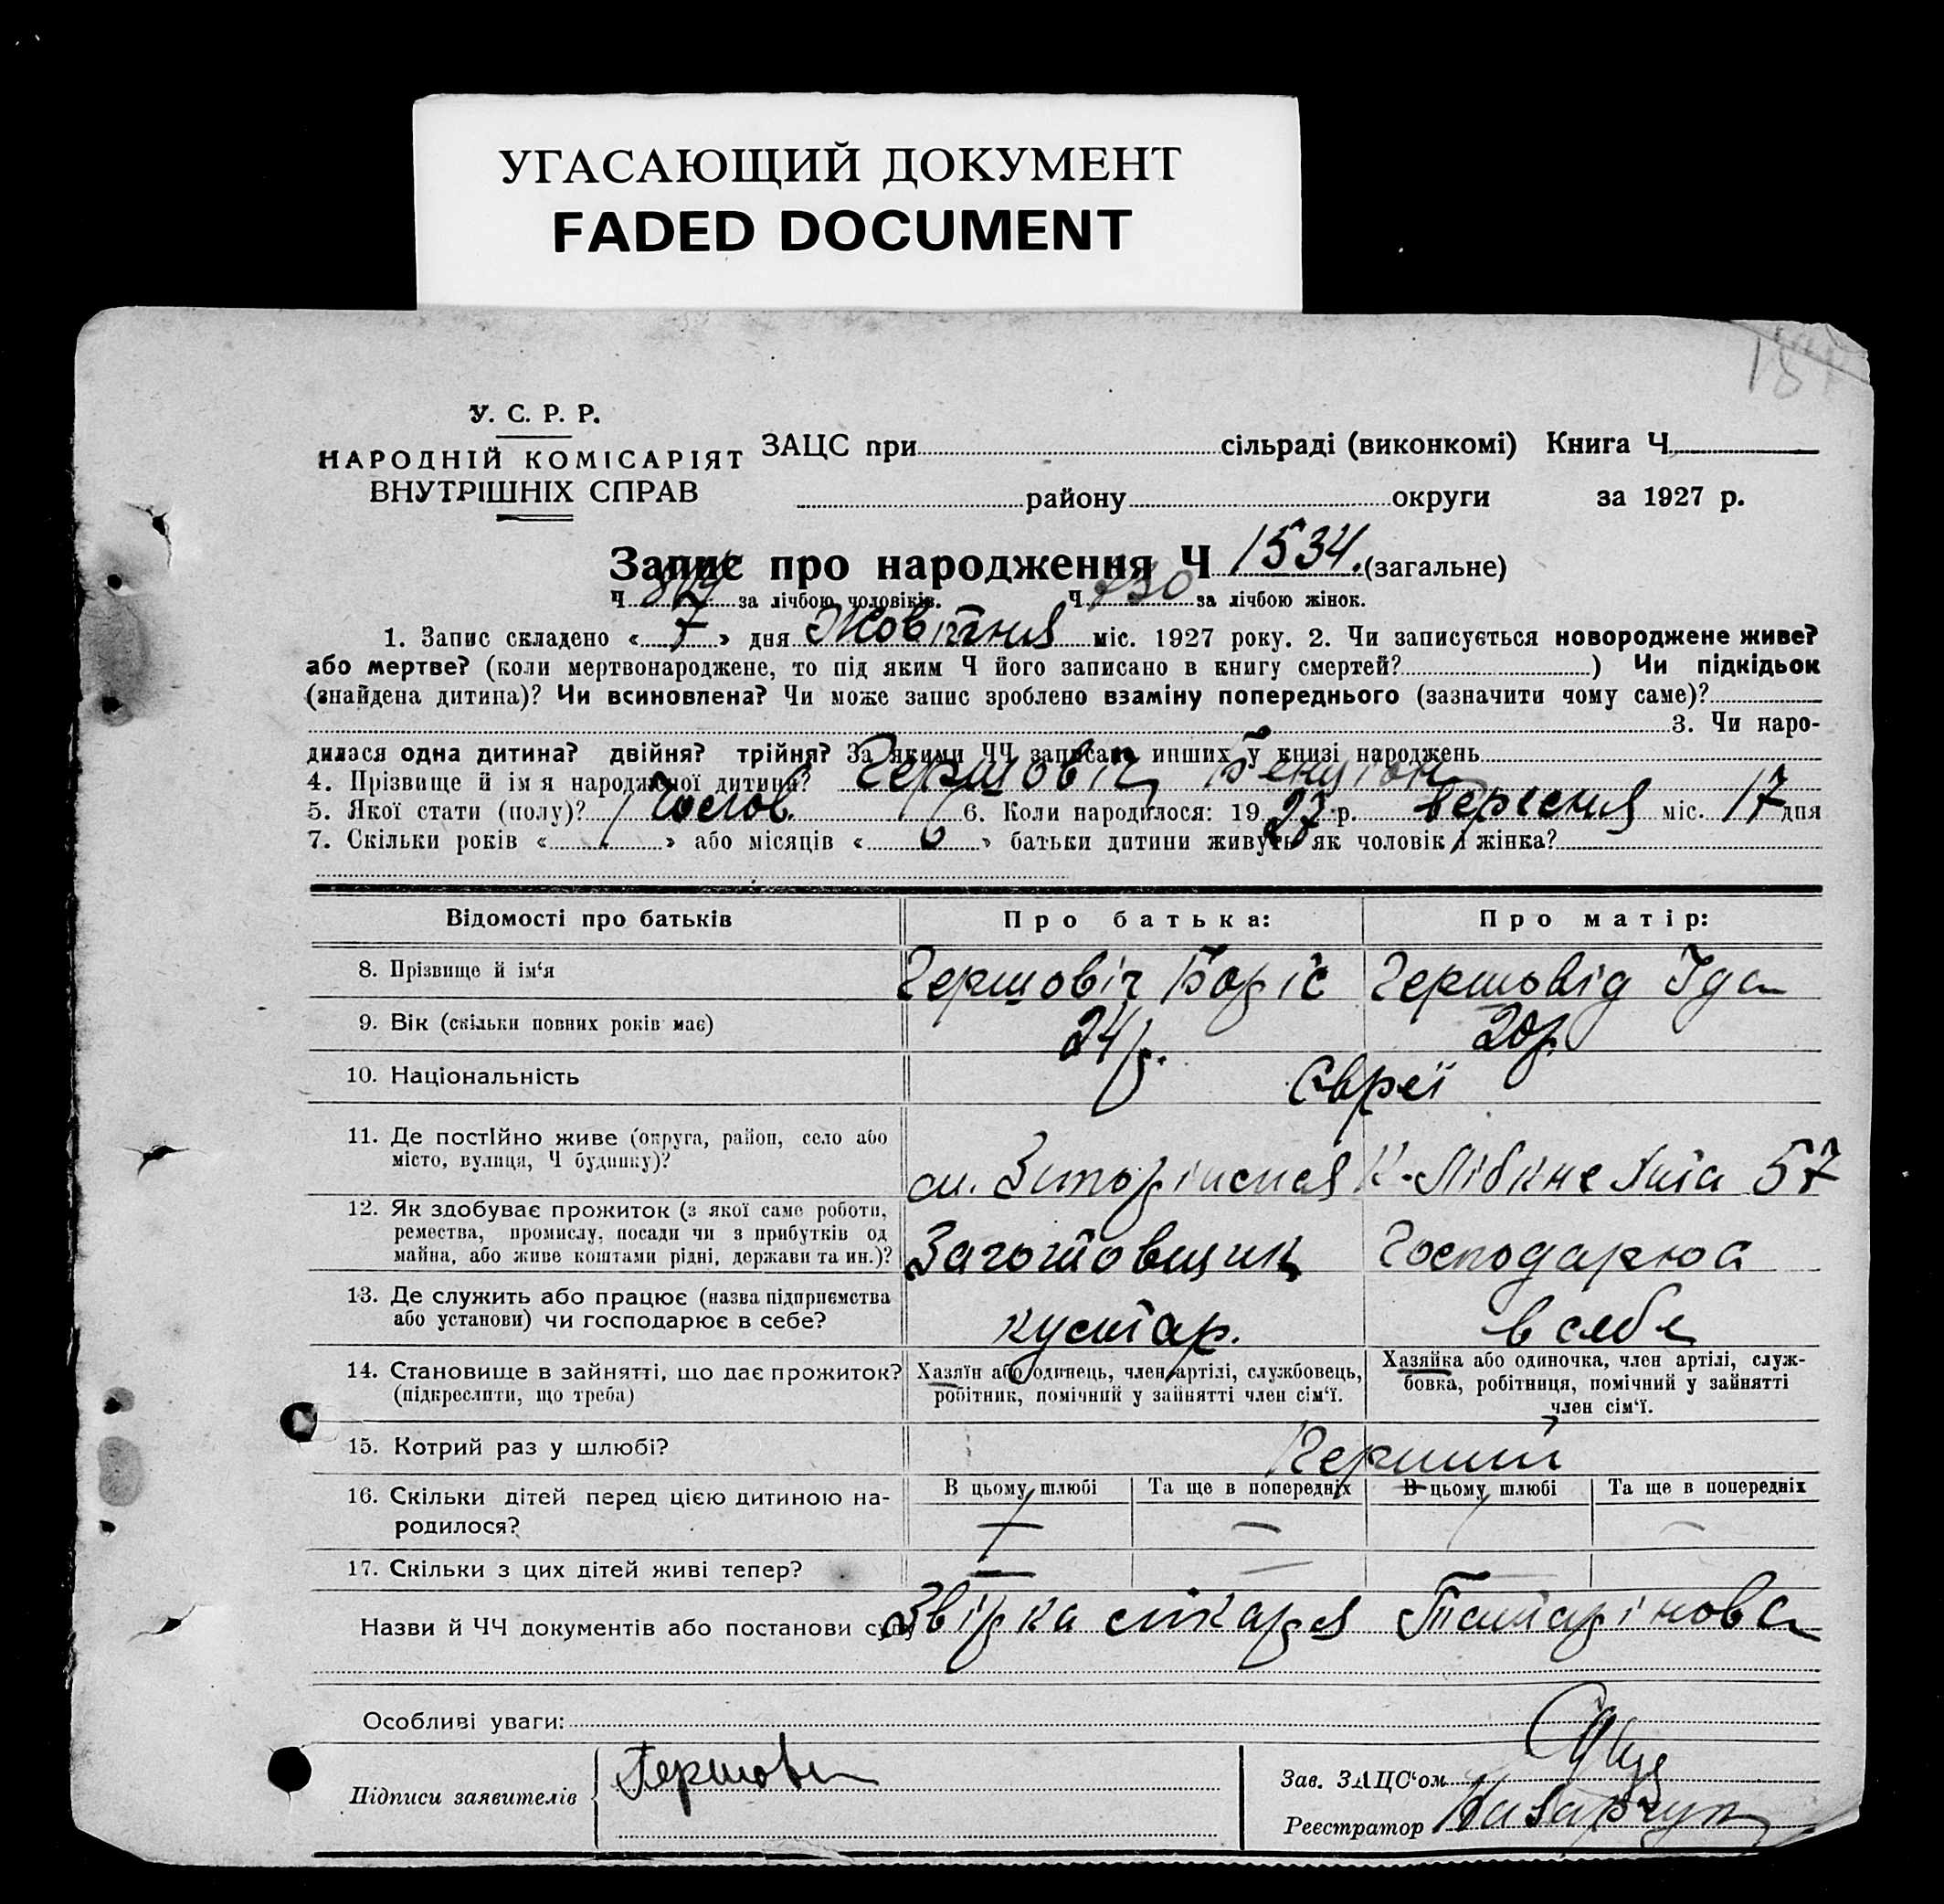 УГАСАЮЩИЙ ДОКУМЕНТ
FADED DOCUMENT
У. С. Р. Р.
НАРОДНІЙ КОМІСАРІЯТ
ВНУТРІШНІХ СПРАВ
ЗАЦС при сільраді (виконкомі) Книга Ч
району округи за 1927 р.
Запис про народження Ч 1534. (загальне)
Ч за лічбою чоловіків. Ч 730 за лічбою жінок.
1. Запис складено « 7 » дня Жовтня міс. 1927 року. 2. Чи записується новороджене живе?
або мертве? (коли мертвонароджене, то під яким Ч його записано в книгу смертей? ) Чи підкідьок
(знайдена дитина)? Чи всиновлена? Чи може запис зроблено взаміну попереднього (зазначити чому саме)?
3. Чи наро-
дилася одна дитина? двійня? трійня? За якими ЧЧ записано инших у книзі народжень
4. Прізвище й імя народженої дитини? Гершовіч Бенціон
5. Якої стати (полу)? Чолов. 6. Коли народилося: 1927 р. вересня міс. 17 дня
7. Скільки років « » або місяців « » батьки дитини живуть як чоловік і жінка?
Відомості про батьків Про батька: Про матір:
8. Прізвище й ім‘я Гершовіч Боріс Гершовіч Іда
9. Вік (скільки повних років має) 24 р. 20 р.
10. Національність Євреї
11. Де постІйно живе (округа, район, село або
місто, вулиця, Ч будинку)? К-Лібкнехта 57
12. Як здобуває прожиток (з якої саме роботи,
ремества, промислу, посади чи з прибутків од
майна, або живе коштами рідні, держави та ин.)? Заготовщик Господарює
13. Де служить або працює (назва підприємства
або установи) чи господарює в себе? кустар. в себе
14. Становище в зайнятті, що дає прожиток?
(підкреслити, що треба)
Хазяїн або одинець, член артілі, службовець,
робітник, помічний у зайнятті член сім‘ї.
Хазяйка або одиночка, член артілі, служ-
бовка, робітниця, помічний у зайнятті
член сім‘ї.
15. Котрий раз у шлюбі? Перший
16. Скільки дітей перед цією дитиною на-
родилося?
В цьому шлюбі Та ще в попередніх В цьому шлюбі Та ще в попередніх
17. Скільки з цих дітей живі тепер?
Назви й ЧЧ документів або постанови суду лікаря Татарінова
Особливі уваги:
Підписи заявителів Гершови
Зав. ЗАЦС‘ом
Реєстратор